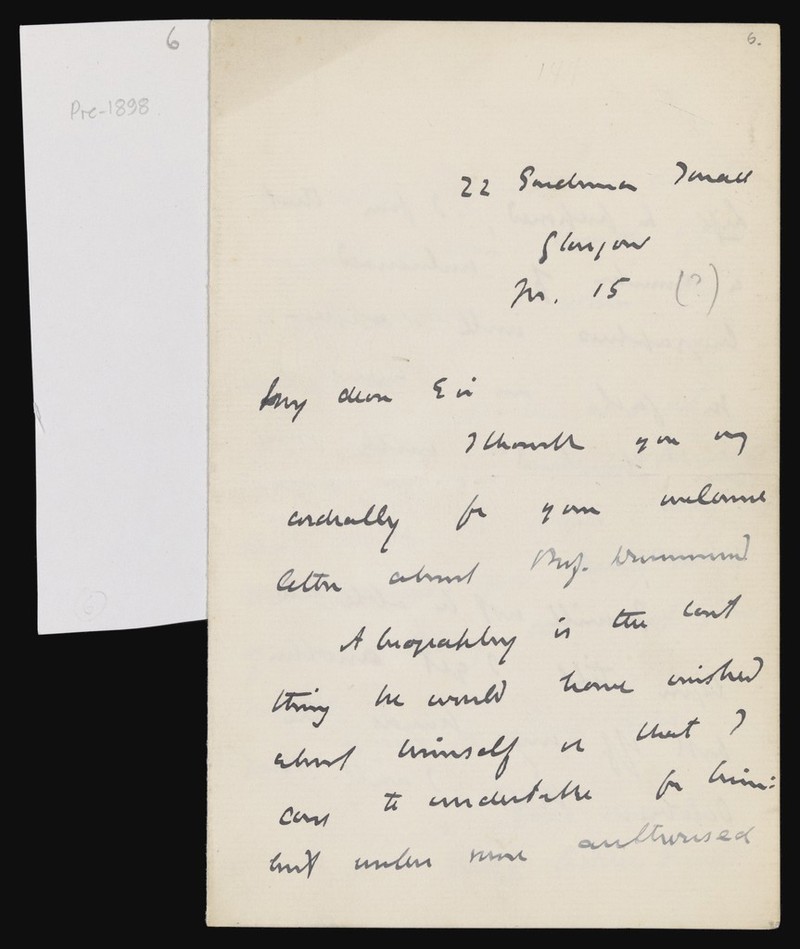 6
Pre-1898
6.
22 Terrace
Glasgow
15 (?)
My dear Sir
I thank you very
cordially for your welcome
letter about Prof. Drummond
A biography is the last
thing he would have wished
about himself or that I
care to undertake for him:
but unless some authorised